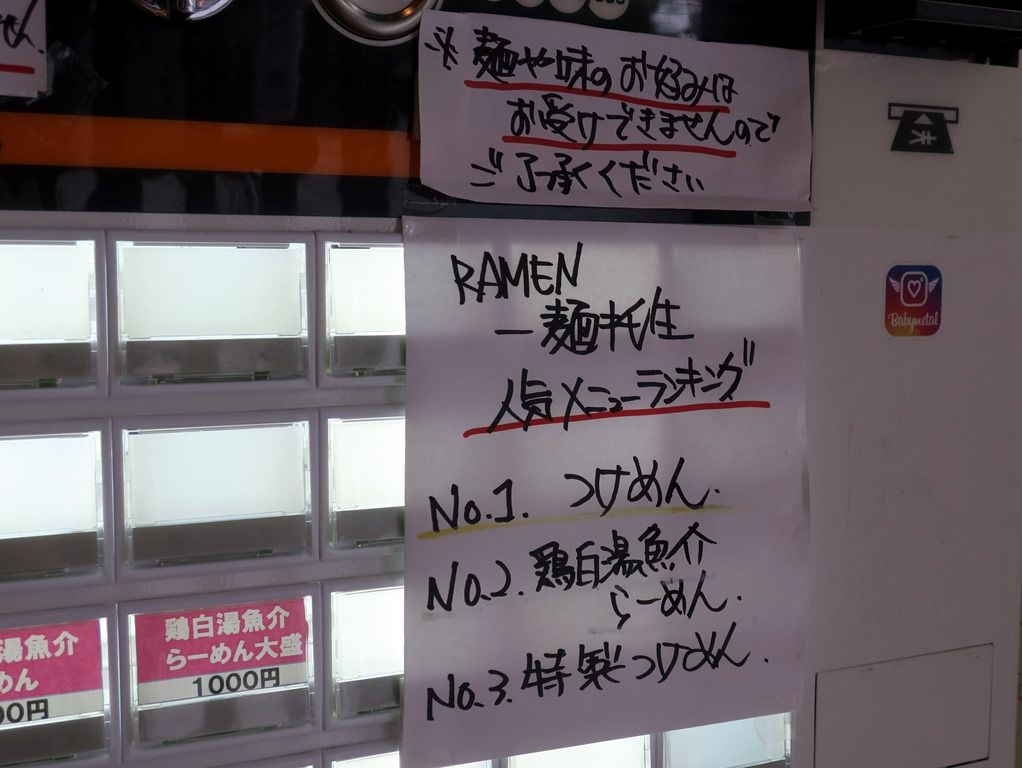 せん.
※麺や味のお好みは
お受けできませんので
ご了承ください
RAMEN
一麺托生
人気メニューランキング
No.1. つけめん.
No.2. 鶏白湯魚介
らーめん.
No.3. 特製つけめん.
Babymetal
湯魚介
めん
00円
鶏白湯魚介
らーめん大盛
1000円